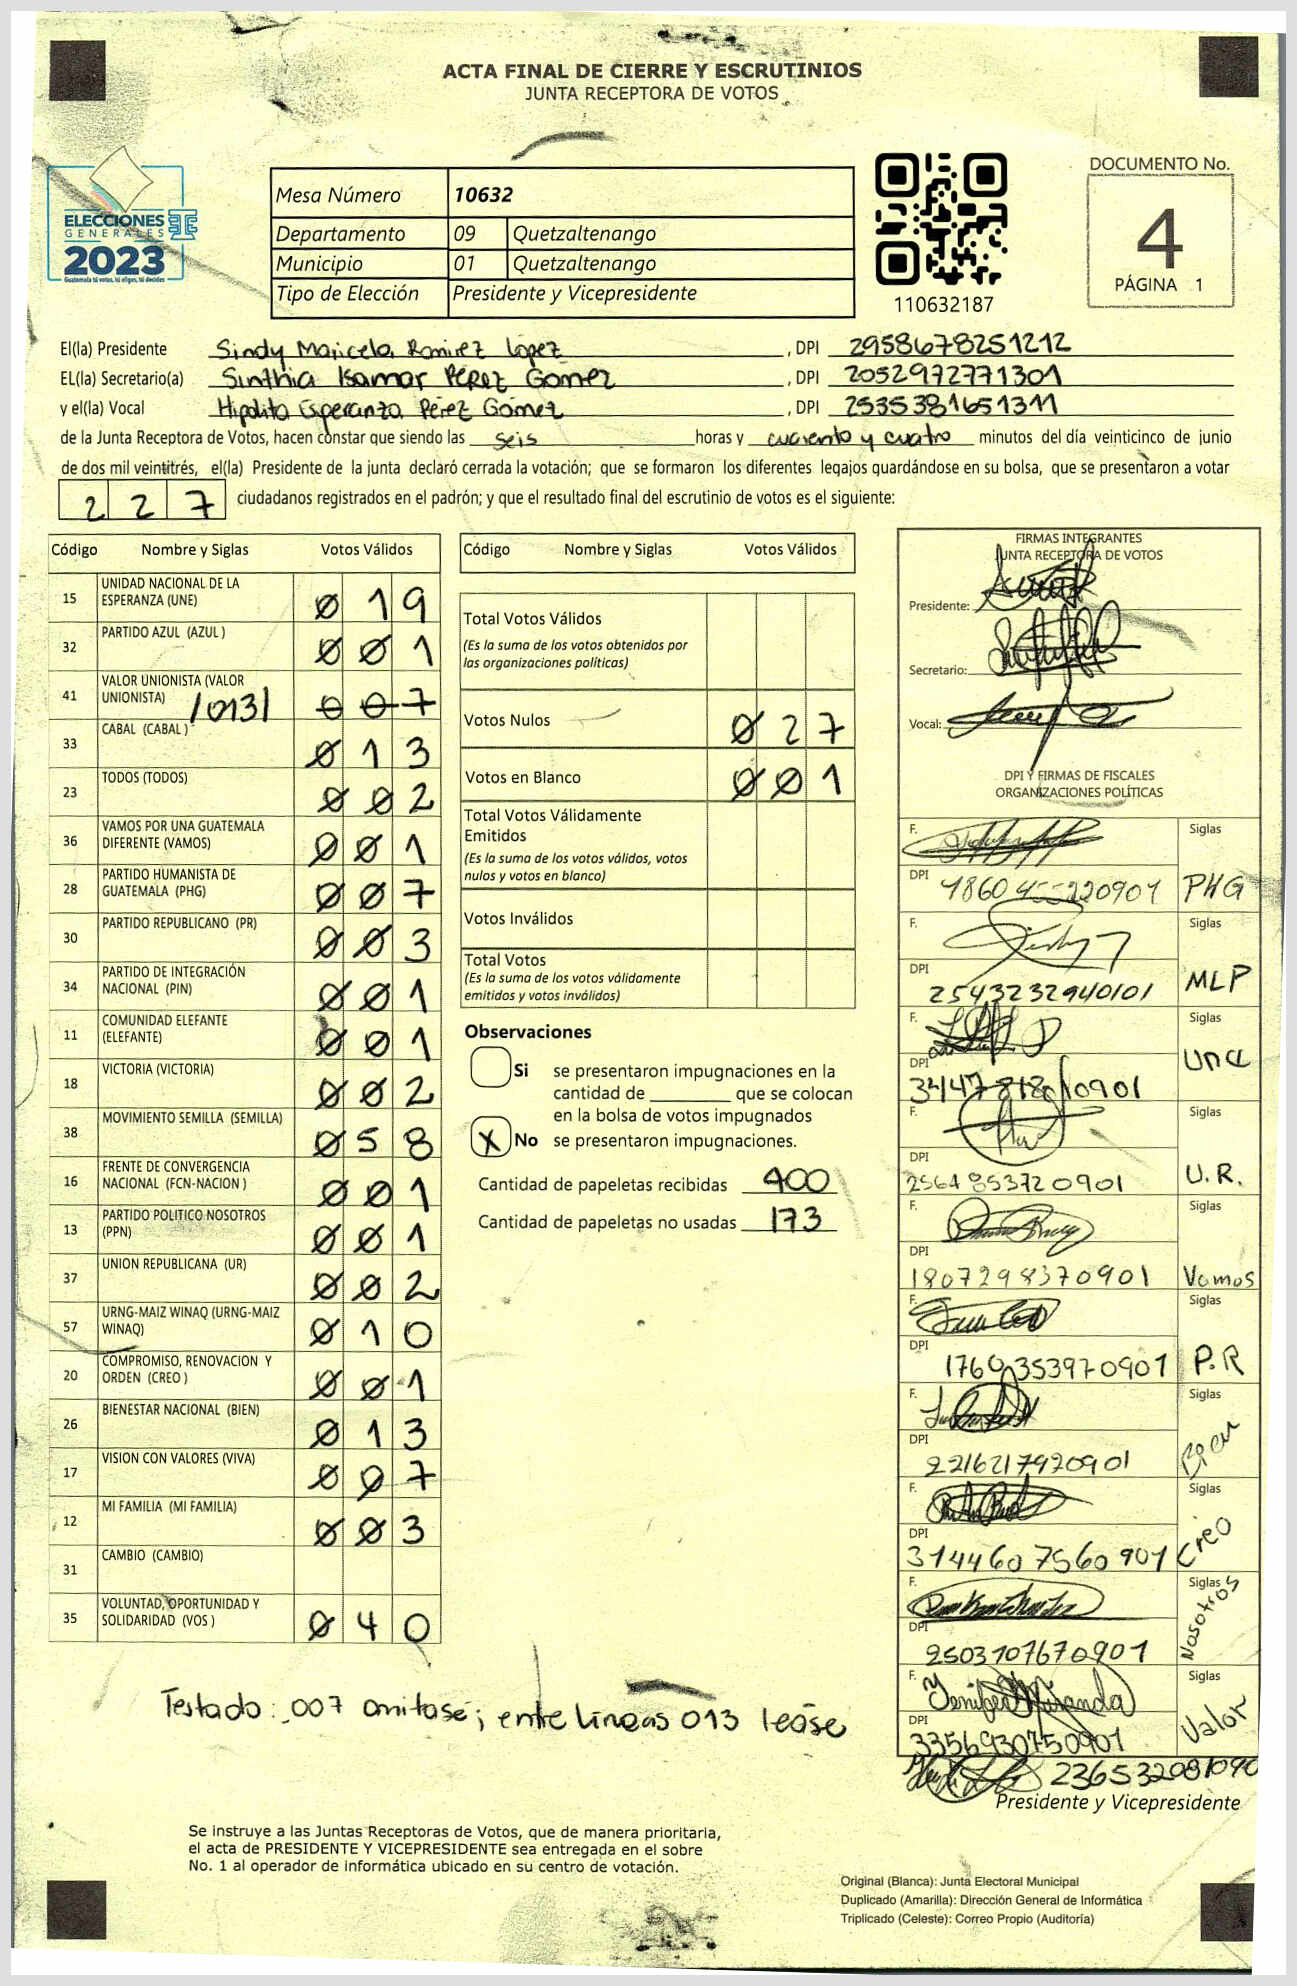 ACTA FINAL DE CIERRE Y ESCRUTINIOS
JUNTA RECEPTORA DE VOTOS
ELECCIONES
GENERALES
2023
Guatemala tú votas, tú eliges, tú decides
Mesa Número 10632
Departamento 09 Quetzaltenango
Municipio 01 Quetzaltenango
Tipo de Elección Presidente y Vicepresidente
110632187
DOCUMENTO No.
4
PÁGINA 1
El(la) Presidente Sindy Maricela Ramirez López, DPI 2958678251212
EL(la) Secretario(a) Sinthia Isamar Pérez Gómez, DPI 2052972771301
y el(la) Vocal Hipolita Esperanza Pérez Gómez, DPI 2535381651311
de la Junta Receptora de Votos, hacen constar que siendo las seis horas y cuarenta y cuatro minutos del día veinticinco de junio
de dos mil veintitrés, el(la) Presidente de la junta declaró cerrada la votación; que se formaron los diferentes legajos guardándose en su bolsa, que se presentaron a votar
227 ciudadanos registrados en el padrón; y que el resultado final del escrutinio de votos es el siguiente:
Código Nombre y Siglas Votos Válidos
15 UNIDAD NACIONAL DE LA ESPERANZA (UNE) 019
32 PARTIDO AZUL (AZUL ) 001
41 VALOR UNIONISTA (VALOR UNIONISTA) /013/ 007
33 CABAL (CABAL ) 013
23 TODOS (TODOS) 002
36 VAMOS POR UNA GUATEMALA DIFERENTE (VAMOS) 001
28 PARTIDO HUMANISTA DE GUATEMALA (PHG) 007
30 PARTIDO REPUBLICANO (PR) 003
34 PARTIDO DE INTEGRACIÓN NACIONAL (PIN) 001
11 COMUNIDAD ELEFANTE (ELEFANTE) 001
18 VICTORIA (VICTORIA) 002
38 MOVIMIENTO SEMILLA (SEMILLA) 058
16 FRENTE DE CONVERGENCIA NACIONAL (FCN-NACION ) 001
13 PARTIDO POLITICO NOSOTROS (PPN) 001
37 UNION REPUBLICANA (UR) 002
57 URNG-MAIZ WINAQ (URNG-MAIZ WINAQ) 010
20 COMPROMISO, RENOVACION Y ORDEN (CREO ) 001
26 BIENESTAR NACIONAL (BIEN) 013
17 VISION CON VALORES (VIVA) 007
12 MI FAMILIA (MI FAMILIA) 003
31 CAMBIO (CAMBIO)
35 VOLUNTAD, OPORTUNIDAD Y SOLIDARIDAD (VOS ) 040
Código Nombre y Siglas Votos Válidos
Total Votos Válidos
(Es la suma de los votos obtenidos por
las organizaciones políticas)
Votos Nulos 027
Votos en Blanco 001
Total Votos Válidamente
Emitidos
(Es la suma de los votos válidos, votos
nulos y votos en blanco)
Votos Inválidos
Total Votos
(Es la suma de los votos válidamente
emitidos y votos inválidos)
Observaciones
Si se presentaron impugnaciones en la
cantidad de que se colocan
en la bolsa de votos impugnados
X No se presentaron impugnaciones.
Cantidad de papeletas recibidas 400
Cantidad de papeletas no usadas 173
FIRMAS INTEGRANTES
JUNTA RECEPTORA DE VOTOS
Presidente:
Secretario:
Vocal:
DPI Y FIRMAS DE FISCALES
ORGANIZACIONES POLÍTICAS
F. Siglas
DPI PHG
F. Siglas
DPI 2543232940101 MLP
F. Siglas
DPI UNE
F. Siglas
DPI 2564853720901 U.R.
F. Siglas
DPI 1807298370901 Vamos
F. Siglas
DPI 1760353970901 P.R
F. Siglas
DPI 2216217920901 Bien
F. Siglas
DPI 3144607560901 Creo
F. Siglas
DPI 2503107670901 Nosotros
F. Yenifer Miranda Siglas
DPI 3356930750901 Valor
236532081090
Presidente y Vicepresidente
Testado: 007 omitase; entre líneas 013 leáse
Se instruye a las Juntas Receptoras de Votos, que de manera prioritaria,
el acta de PRESIDENTE Y VICEPRESIDENTE sea entregada en el sobre
No. 1 al operador de informática ubicado en su centro de votación.
Original (Blanca): Junta Electoral Municipal
Duplicado (Amarilla): Dirección General de Informática
Triplicado (Celeste): Correo Propio (Auditoría)